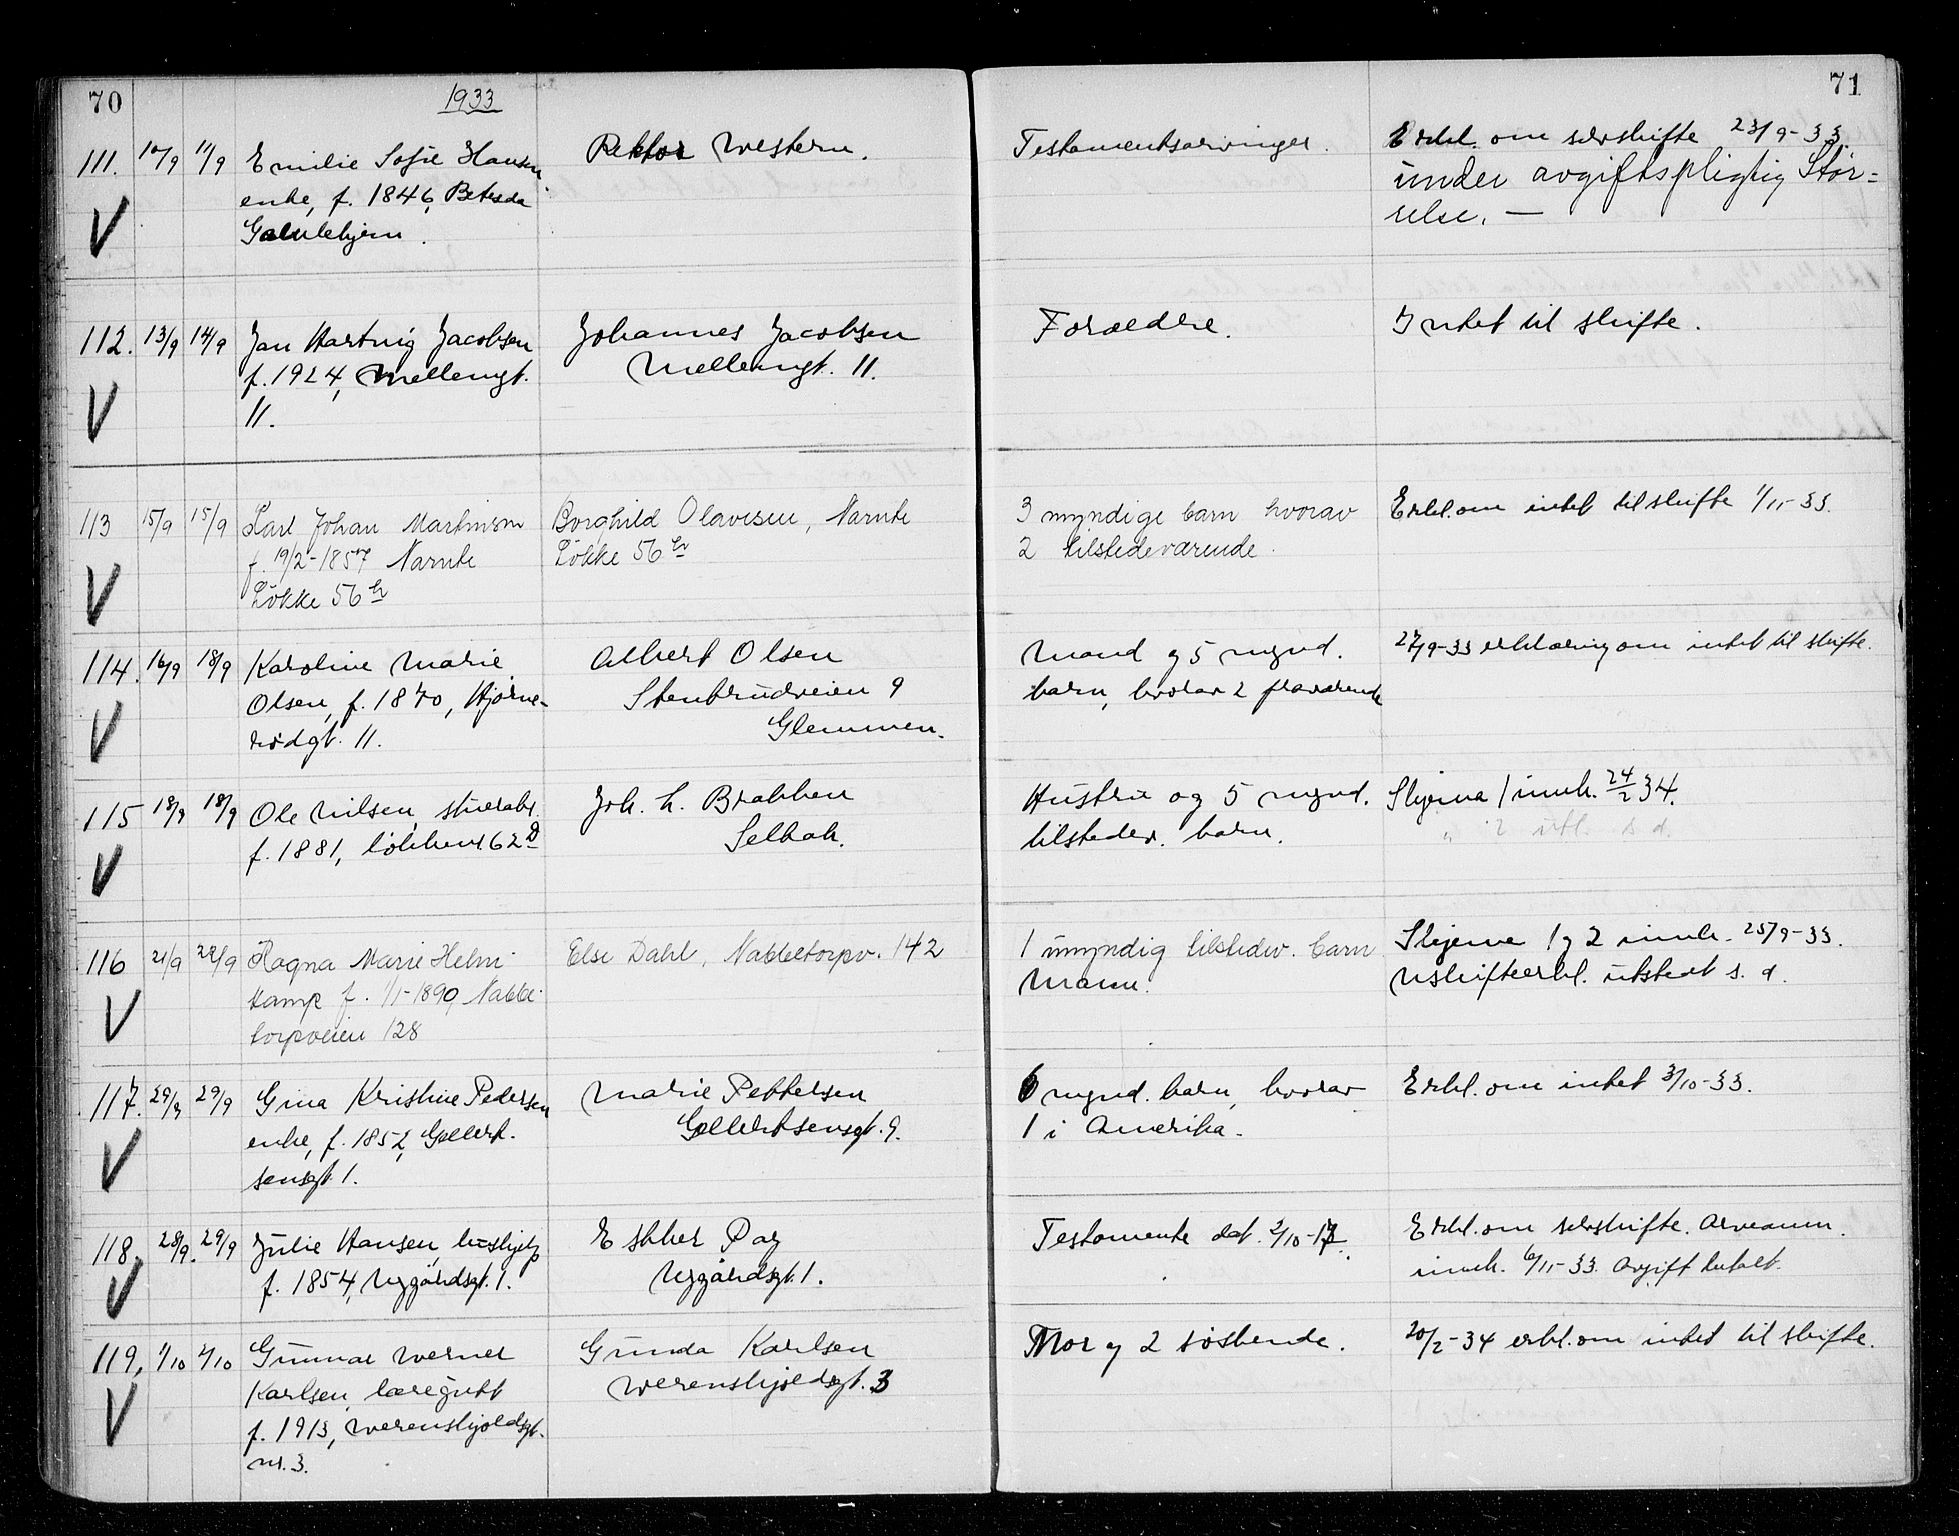 70
1933
71
111. 10/9 11/9 Emilie Sofie Hansen Rektor Western. Testamentsarvinger. Erkl. om selvskifte 23/9-33.
enke, f. 1846, Betesda under avgiftspligtig Stør=
Gamlehjem. relse. —
112. 13/9 14/9 Jan Hartvig Jacobsen Johannes Jacobsen Forældre. Intet til skifte.
f. 1924, Mellemgt. Mellemgt. 11.
11.
113 15/9 15/9 Karl Johan Martinsen Borghild Olavesen, Narnte 3 myndige barn hvorav Erkl. om intet til skifte 1/11-33.
f. 19/2-1857 Narnte Løkke 56 2 tilstedeværende.
Løkke 56
114. 16/9 18/9 Karoline Marie Albert Olsen Mand og 5 mynd. 27/9-33 erklæring om intet til skifte.
Olsen, f. 1870, Hjørne- Stenbrudveien 9 barn, hvorav 2 fraværende
rødgt. 11. Glemmen.
115 18/9 18/9 Ole Nilsen, stuerarb. Joh. L. Brakken Hustru og 5 mynd. Skjema 1 innk. 24/2 34.
f. 1881, Løkken 62 D Selbak. tilstedev. barn. " 2 utl. s. d.
116 21/9 22/9 Ragna Marie Helm- Else Dahl, Nabbetorpv. 142 1 umyndig tilstedev. barn Skjema 1 og 2 innk. 25/9-33.
kamp f. 1/1-1890, Nabbe- Mann. Uskifteerkl. utstedt s. d.
torpveien 128
117. 29/9 29/9 Gina Kristine Pedersen Marie Pettersen 6 mynd. barn, hvorav Erkl. om intet 3/10-33.
enke, f. 1852, Gellert- Gellertsensgt. 9. 1 i Amerika.
sensgt. 1.
118. 28/9. 29/9 Julie Hansen, hushjelp Esther Pay Testamente dat. 2/10-17. Erkl. om selvskifte. Arveanm.
f. 1854, Nygårdsgt. 1. Nygårdsgt. 1. innk. 6/11-33. Avgift betalt.
119, 1/10 2/10 Gunnar Werner Gunda Karlsen Mor og 2 søskende. 20/2-34 erkl. om intet til skifte.
Karlsen, læregutt Werenskjoldsgt. 3
f. 1913, Werenskjoldsgt.
nr. 3.